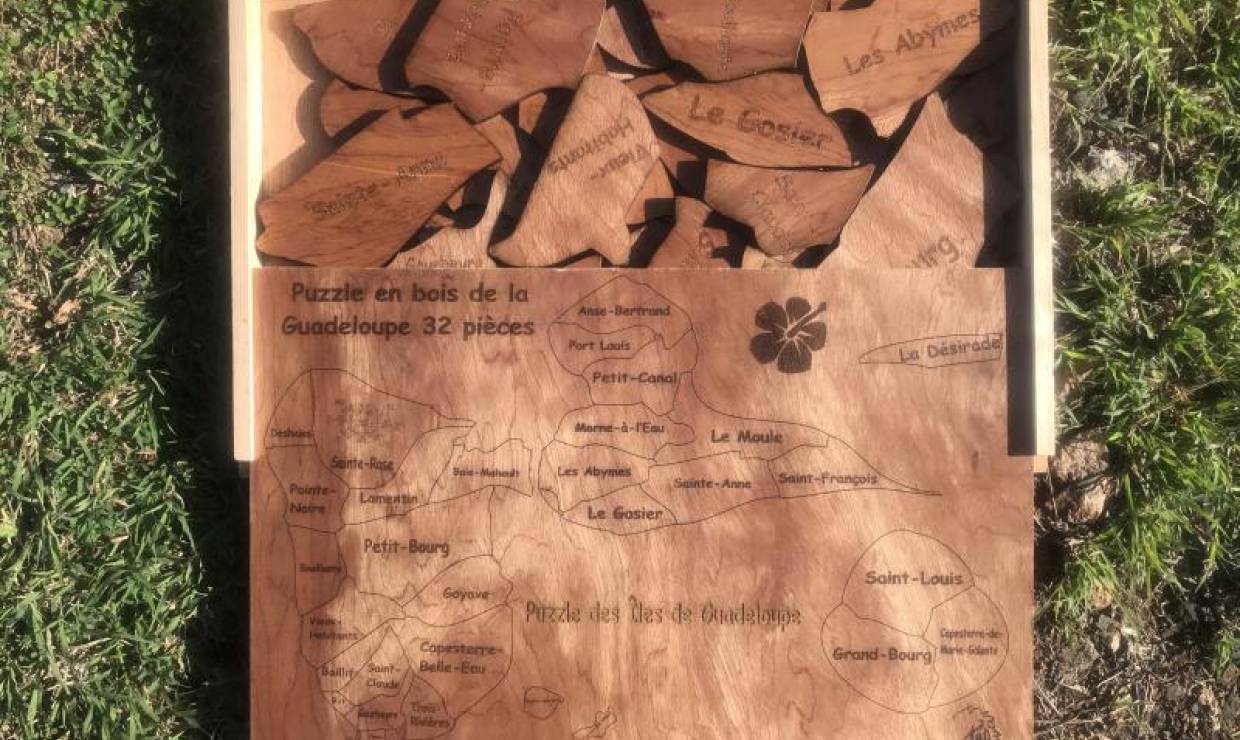 Les Abymes
Le Gosier
Sainte-Anne
Vieux-
Habitants
Gourbeyre
urg
Puzzle en bois de la
Guadeloupe 32 pièces
Anse-Bertrand
Port Louis
Petit-Canal
La Désirade
Morne-à-l'Eau
Le Moule
Deshaies
Sainte-Rose
Baie-Mahault
Les Abymes
Sainte-Anne
Saint-François
Pointe-
Noire
Lamentin
Le Gosier
Petit-Bourg
Bouillante
Saint-Louis
Goyave
Puzzle des Îles de Guadeloupe
Vieux-
Habitants
Capesterre-
Belle-Eau
Grand-Bourg
Capesterre-de-
Marie-Galante
Baillif
Saint-
Claude
Gourbeyre
Trois-
Rivières